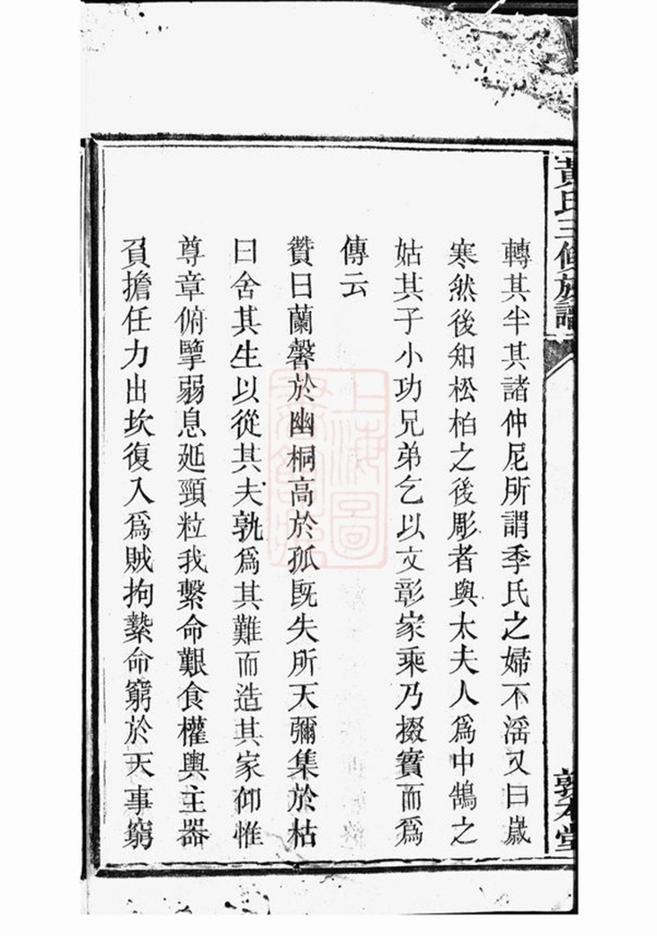 黃氏三修族譜
敦本堂
轉其半其諸仲尼所謂季氏之婦不滛又曰歲
寒然後知松柏之後彫者與太夫人爲中鵠之
姑其子小功兄弟乞以文彰家乘乃掇實而爲
傳云
贊曰蘭馨於幽桐高於孤旣失所天彌集於枯
曰舍其生以從其夫孰爲其難而造其家仰惟
尊章俯擥弱息延頸粒我繫命艱食權輿主器
負擔任力出坎復入爲賊拘縶命窮於天事窮
上海圖
書館藏